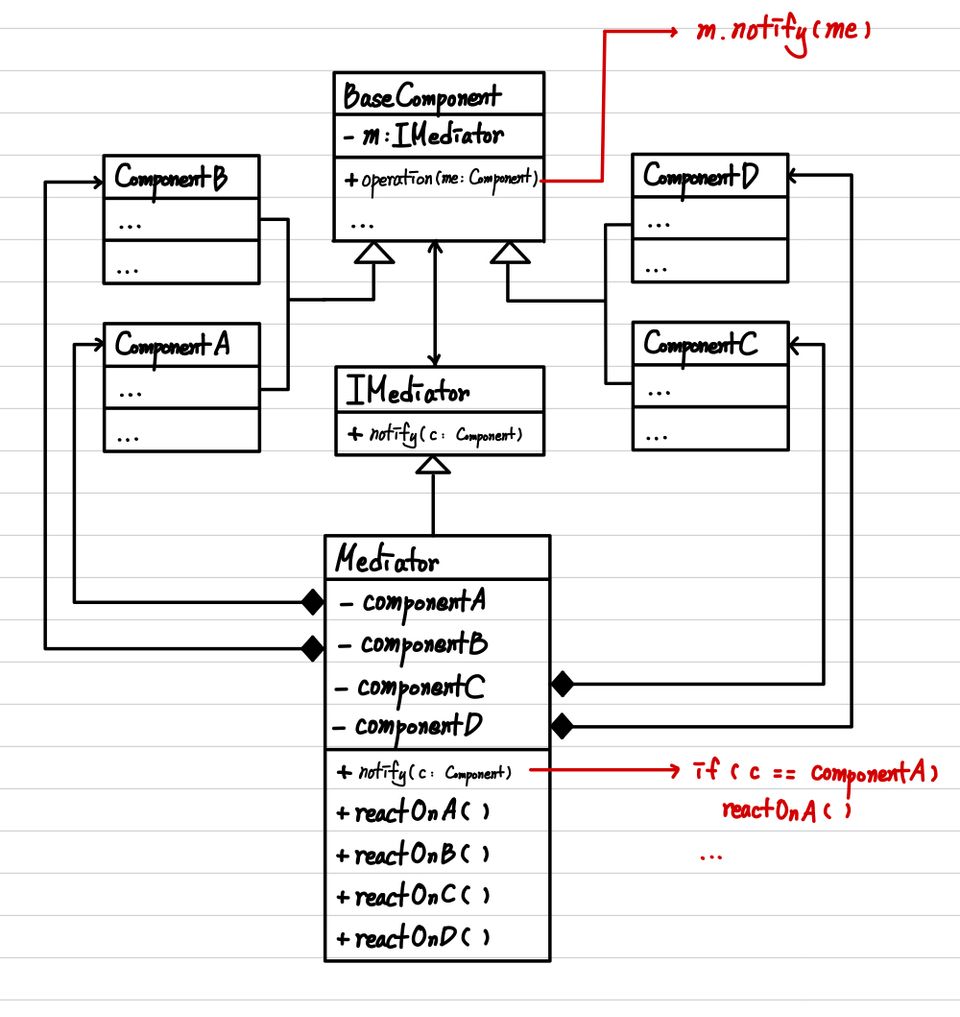 m.notify(me)
BaseComponent
- m: IMediator
+ operation(me: Component)
...
ComponentB
...
...
ComponentD
...
...
ComponentA
...
...
ComponentC
...
...
IMediator
+ notify(c: Component)
Mediator
- componentA
- componentB
- componentC
- componentD
+ notify(c: Component)
+ reactOnA()
+ reactOnB()
+ reactOnC()
+ reactOnD()
if (c == ComponentA)
reactOnA()
...